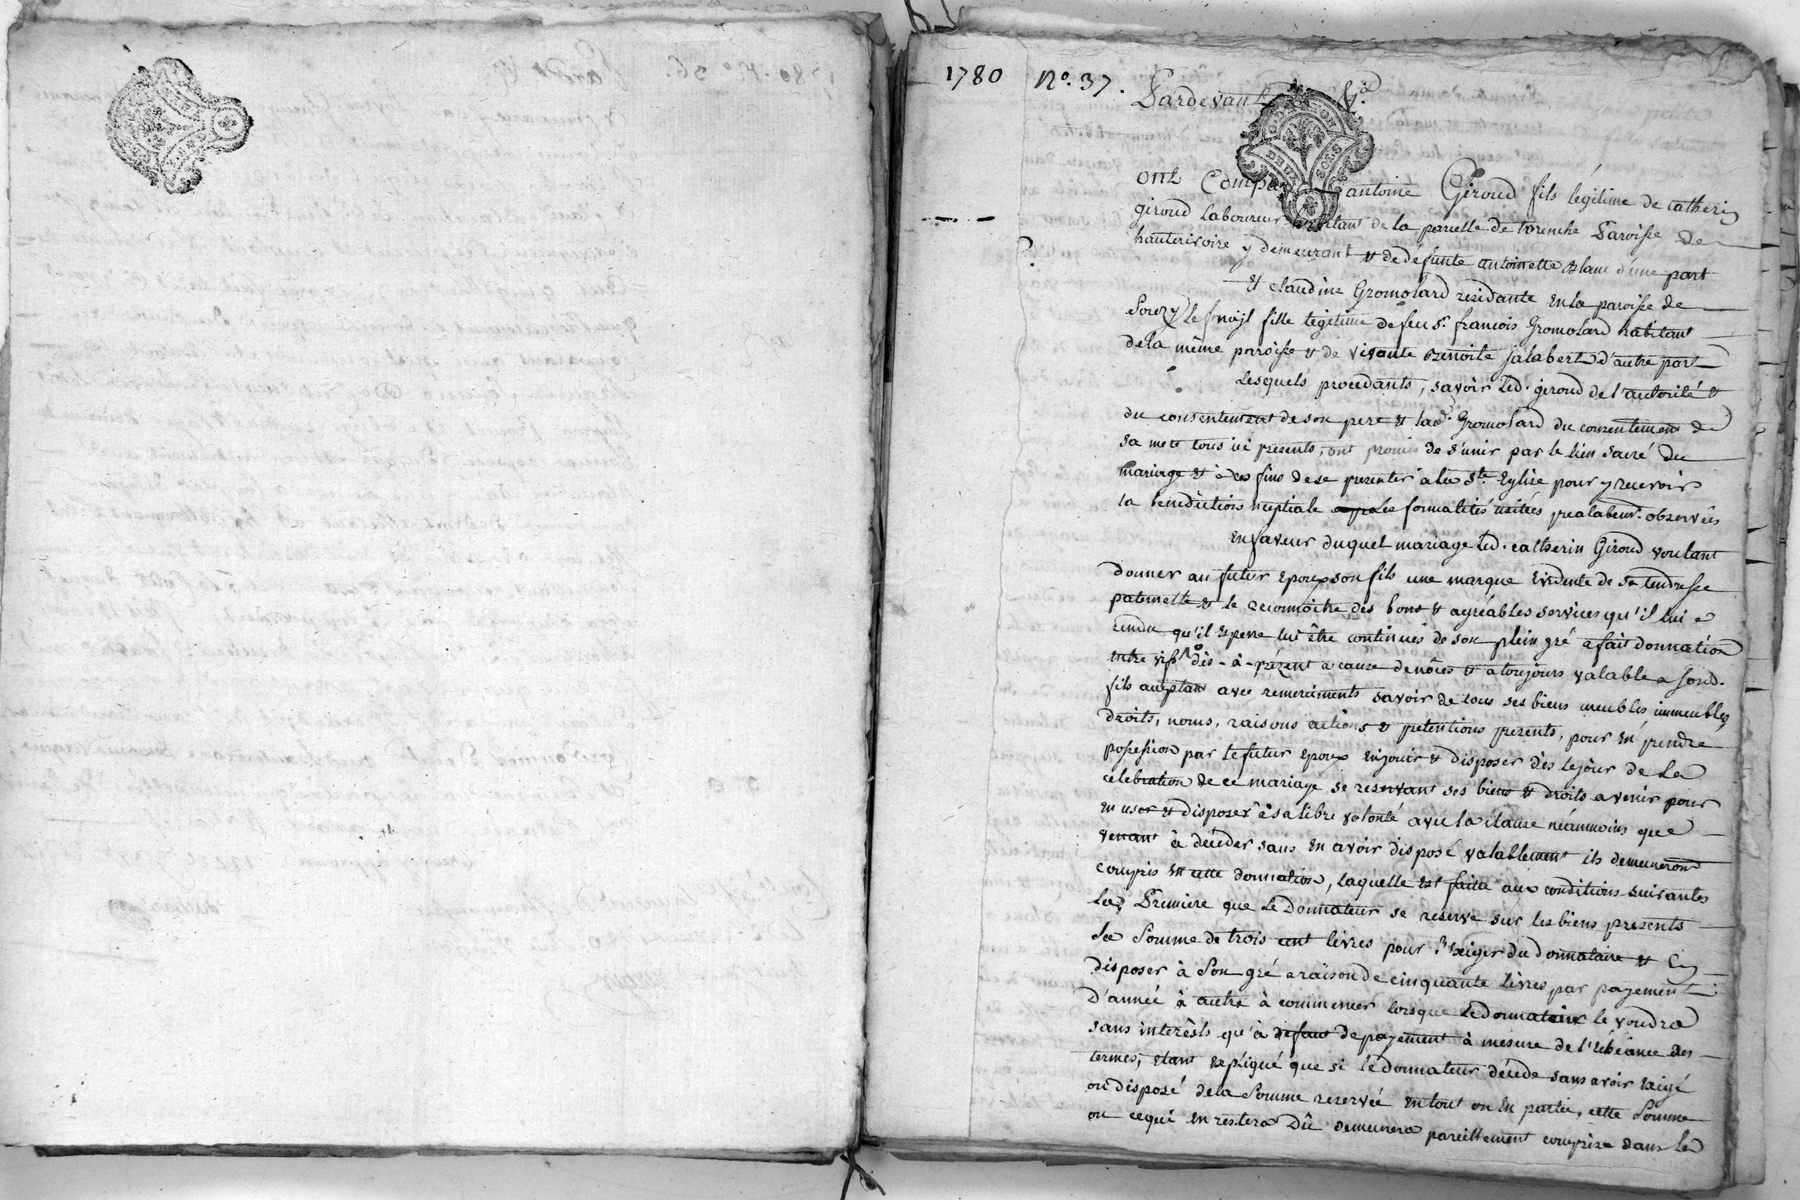 1780 N°. 37.
Pardevant &ca
GEN DE LYON
DEUX SOLS
ont Compa antoine Giroud fils légitime de catherin
giroud laboureur habitant de la parcelle de Paroisse de
hauterivoire y demeurant & de défunte antoinette blanc d'une part
& claudine Gromolard residante en la paroisse de
Souzy fille légitime de feu Sr. francois Gromolard habitant
de la même paroisse & de vivante benoite jalabert d'autre part
Lesquels procedants, savoir led. giroud de l'autorité &
du consentement de son pere & lad. Gromolard du consentement de
sa mere tous ici presents, ont promis de s'unir par le lien sacré du
mariage & à ces fins de se presenter à la Ste. Eglise pour y recevoir
la benediction nuptiale les formalités usitées prealablemt. observées
en faveur duquel mariage led. catherin Giroud voulant
donner au futur Epoux son fils une marque Evidente de sa tendresse
paternelle & le reconnoitre des bons & agréables services qu'il lui a
rendu qu'il Espere lui être continués de son plein gré a fait donnation
entre vifs dès-à-présent a cause de nôces & a toujours valable a sond.
fils aceptant avec remerciments savoir de tous ses biens meubles immeubles,
droits, noms, raisons actions & pretentions presents, pour en prendre
possession par le futur epoux en jouir & disposer dès le jour de la
celebration de ce mariage se reservant ses biens & droits a venir pour
en user & disposer à sa libre volonté avec la clause néanmoins que
venant à décéder sans en avoir disposé valablement ils demeureront
compris en cette donnation, laquelle est faitte aux conditions suivantes
La Premiere que le Donnateur se reserve sur les biens presents
la Somme de trois cent livres pour l'exiger du donnataire & en
disposer à Son gré a raison de cinquante livres par payement
D'année à autre à commencer lorsque le donnateur le voudra
sans interêsts qu'à defaut de payement à mesure de l'echéance des
termes; etant expliqué que si le donnateur décede sans avoir exigé
ou disposé de la Somme reservée en tout ou en partie, cette Somme
ou ce qui en restera Dû demeurera pareillement comprise dans la